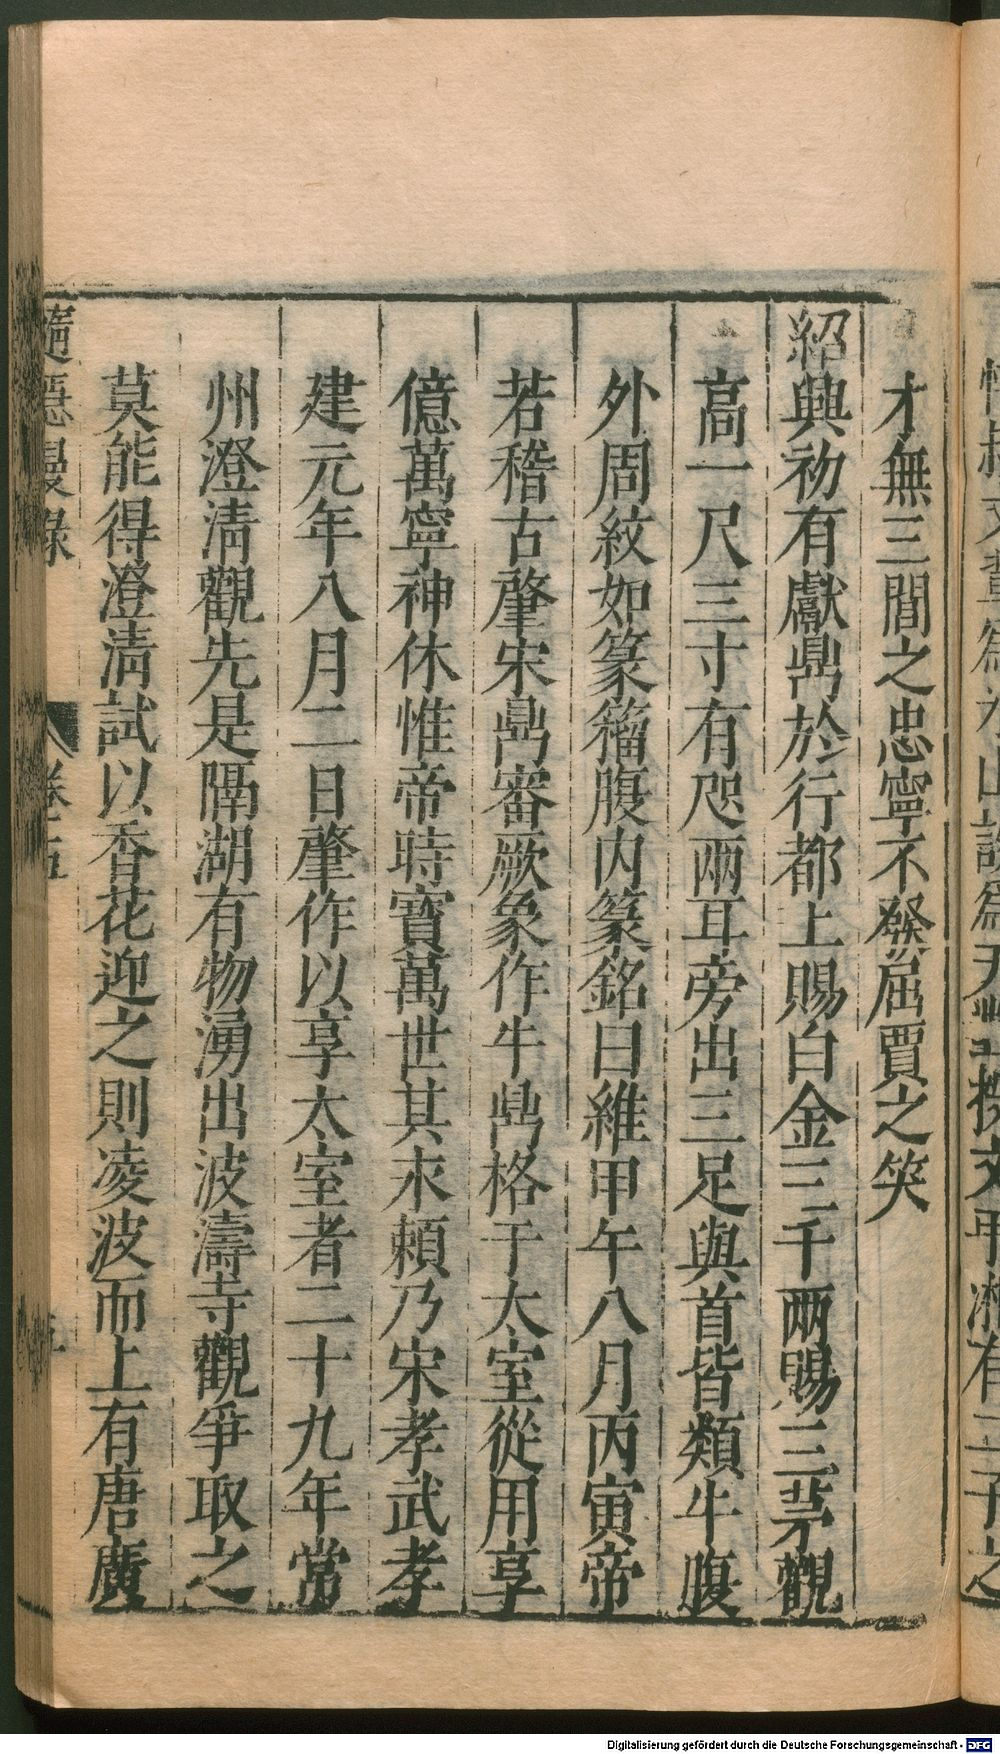 才無三閭之忠寧不發屈賈之笑
紹興初有獻鼎於行都上賜白金三千兩賜三茅觀
高一尺三寸有咫兩耳旁出三足與首皆類牛腹
外周紋如篆籀腹内篆銘曰維甲午八月丙寅帝
若稽古肇宋鼎審厥象作牛鼎格于太室從用享
億萬寧神休惟帝時寶萬世其永賴乃宋孝武孝
建元年八月二日肇作以享太室者二十九年常
州澄清觀先是隔湖有物湧出波濤寺觀爭取之
莫能得澄清試以香花迎之則凌波而上有唐廣
隨隱漫錄
卷五
Digitalisierung gefördert durch die Deutsche Forschungsgemeinschaft - DFG